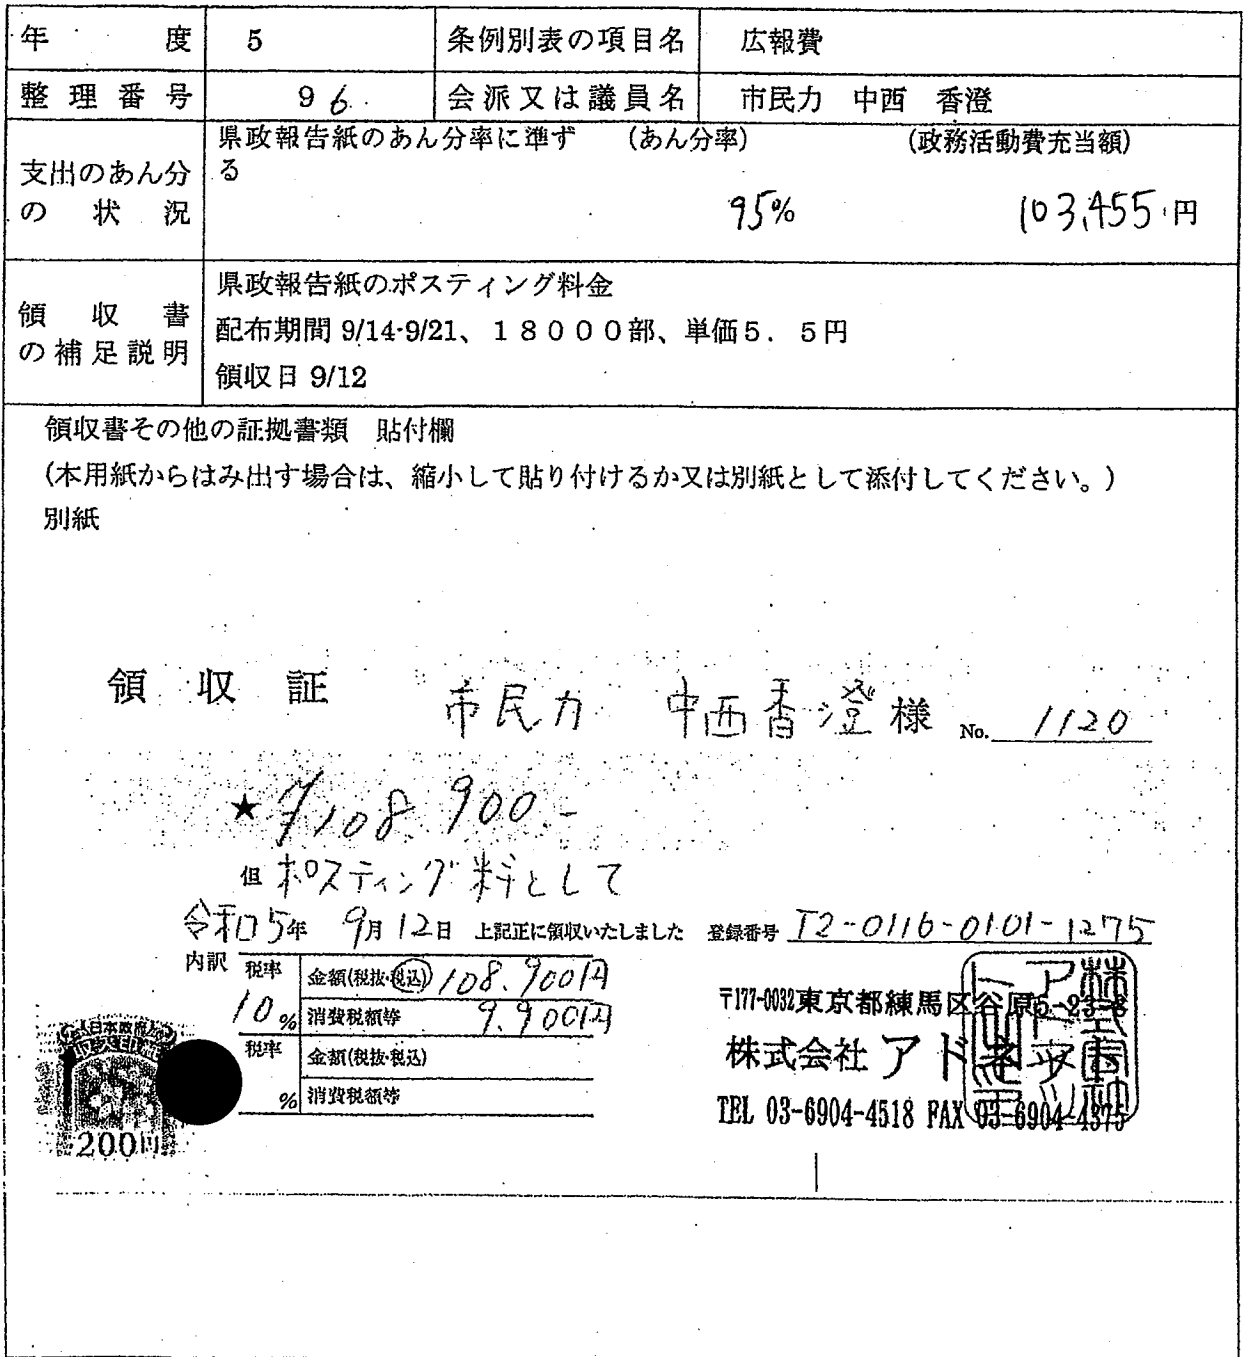 年度 5 条例別表の項目名 広報費
整理番号 96 会派又は議員名 市民力 中西 香澄
支出のあん分の状況
県政報告紙のあん分率に準ずる (あん分率) (政務活動費充当額)
95% 103,455円
領収書の補足説明
県政報告紙のポスティング料金
配布期間 9/14-9/21、18000部、単価5.5円
領収日 9/12
領収書その他の証拠書類 貼付欄
(本用紙からはみ出す場合は、縮小して貼り付けるか又は別紙として添付してください。)
別紙
領収証 市民力 中西香澄 様 No. 1120
★ ¥108,900.-
但 ポスティング料として
令和5年 9月12日 上記正に領収いたしました 登録番号 T2-0116-0101-1275
内訳 税率 10% 金額(税抜・税込) 108,900円
消費税額等 9,900円
税率 % 金額(税抜・税込)
消費税額等
日本政府
収入印紙
200円
〒177-0032東京都練馬区谷原5-23-8
株式会社 アドネッツ
TEL 03-6904-4518 FAX 03-6904-4375